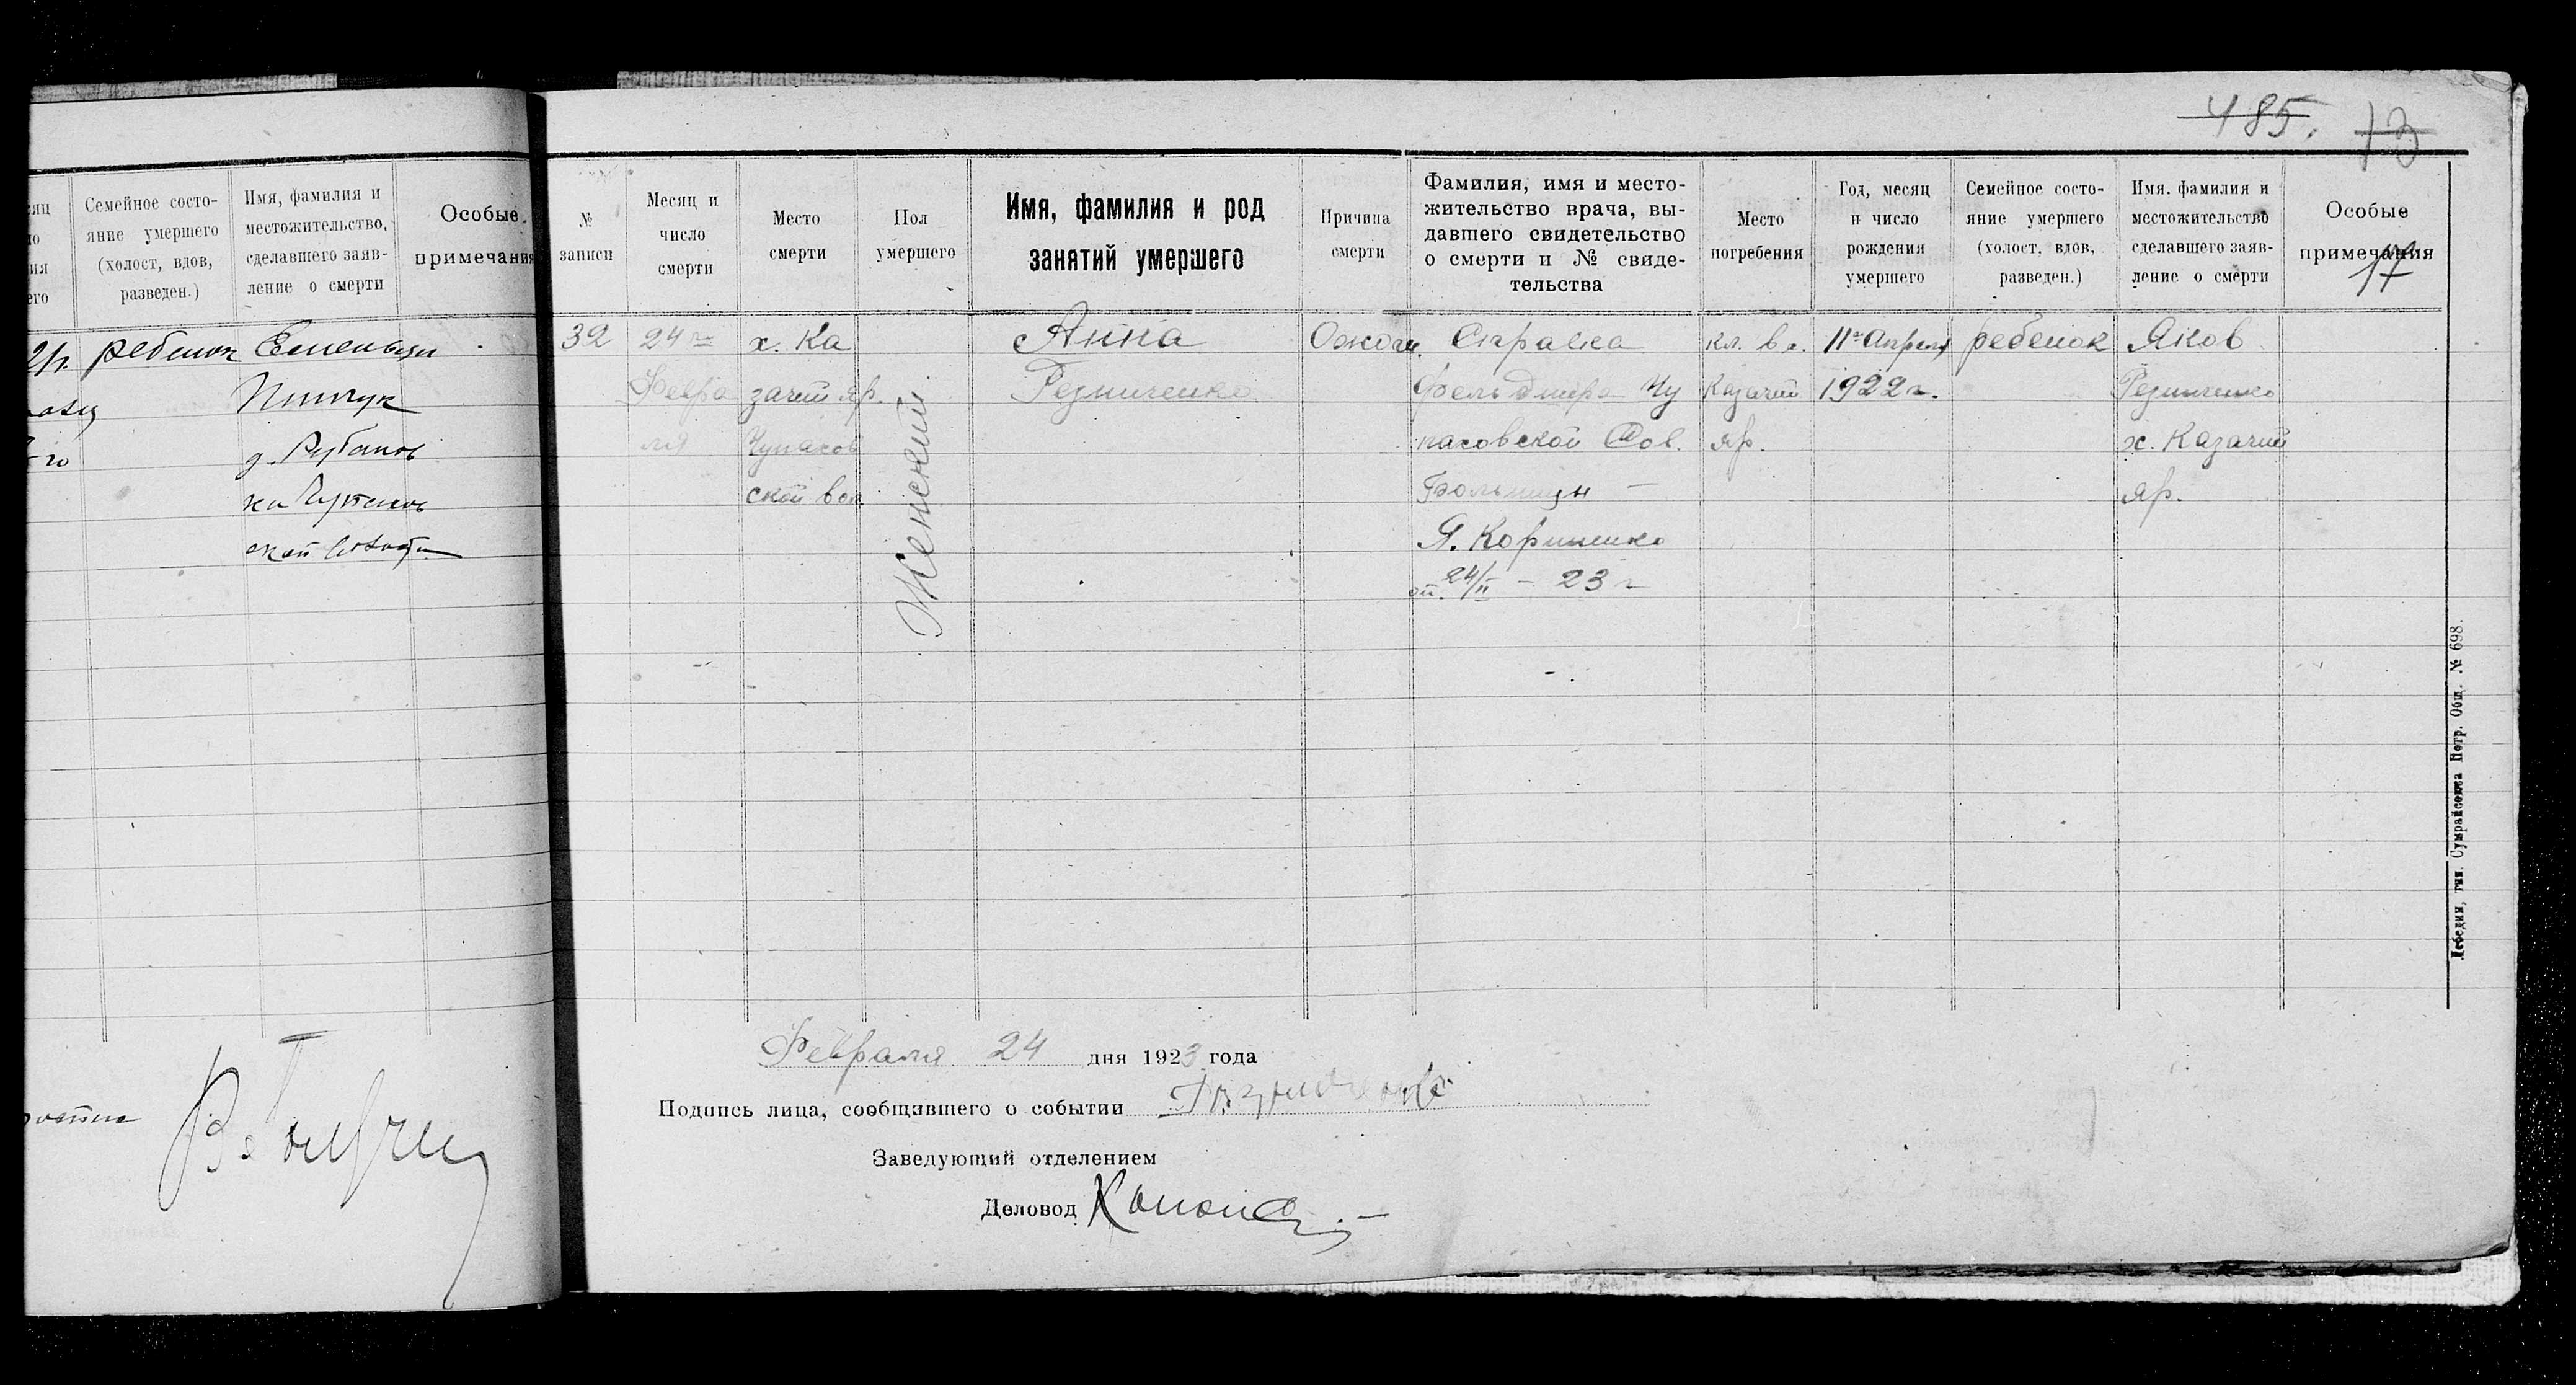 485. 13
17
Семейное состо-
яние умершего
(холост, вдов,
разведен.)
Имя, фамилия и
местожительство,
сделавшего заяв-
ление о смерти
Особые
примечания
ребенок
Пинчук
№
записи
Месяц и
число
смерти
Место
смерти
Пол
умершего
Имя, фамилия и род
занятий умершего
Причина
смерти
Фамилия, имя и место-
жительство врача, вы-
давшего свидетельство
о смерти и № свиде-
тельства
Место
погребения
Год, месяц
и число
рождения
умершего
Семейное состо-
яние умершего
(холост, вдов,
разведен.)
Имя, фамилия и
местожительство
сделавшего заяв-
ление о смерти
Особые
примечания
32
24го
Февра
ля
х. Ка
зачий яр.
Чупахов
ской вол.
Женский
Анна
Резниченко
Справка
фельдшера Чу
паховской Сов.
Больницы —
от 24/II – 23 г
кл. в х.
Казачий
яр.
11го Апреля
1922 г.
ребенок
Яков
Резниченко
х. Казачий
яр.
Февраля 24 дня 1923 года
Подпись лица, сообщившего о событии
Заведующий отделением
Деловод
№ 698.